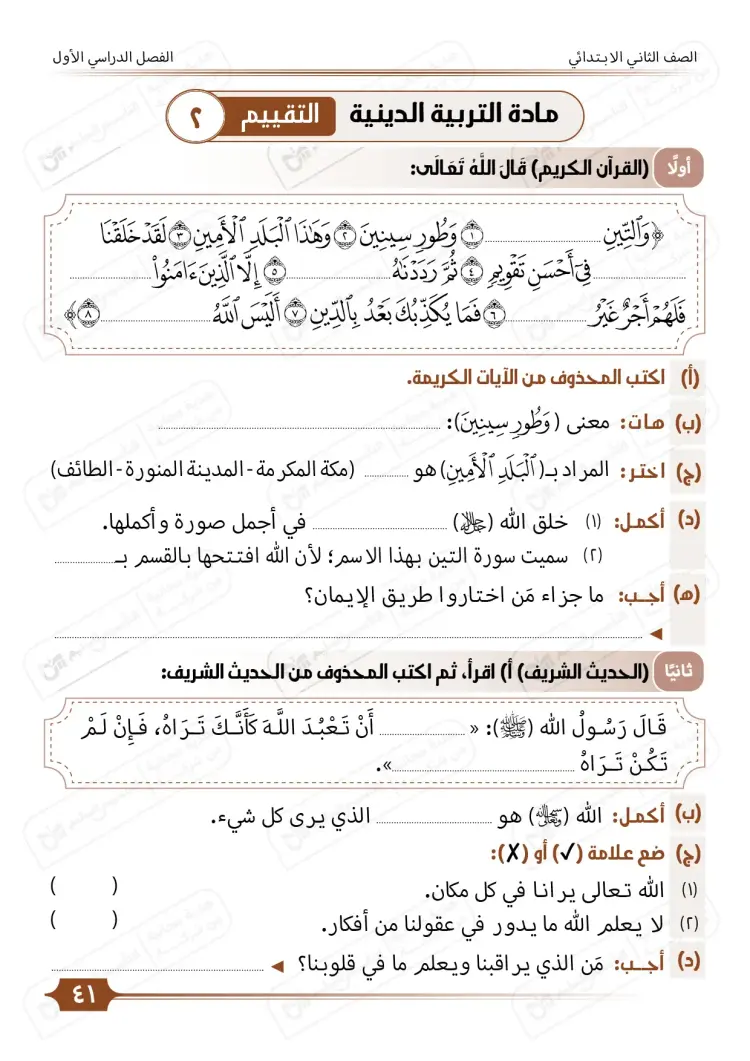 الصف الثاني الابتدائي الفصل الدراسي الأول
مادة التربية الدينية التقييم ٢
أولًا (القرآن الكريم) قَالَ اللَّهُ تَعَالَى:
﴿وَٱلتِّينِ .................... ١ وَطُورِ سِينِينَ ٢ وَهَٰذَا ٱلْبَلَدِ ٱلْأَمِينِ ٣ لَقَدْ خَلَقْنَا
.................... فِىٓ أَحْسَنِ تَقْوِيمٍ ٤ ثُمَّ رَدَدْنَٰهُ .................... ٥ إِلَّا ٱلَّذِينَ ءَامَنُوا۟ ....................
فَلَهُمْ أَجْرٌ غَيْرُ .................... ٦ فَمَا يُكَذِّبُكَ بَعْدُ بِٱلدِّينِ ٧ أَلَيْسَ ٱللَّهُ .................... ٨﴾
(أ) اكتب المحذوف من الآيات الكريمة.
(ب) هات: معنى (وَطُورِ سِينِينَ): ....................
(ج) اختر: المراد بـ(ٱلْبَلَدِ ٱلْأَمِينِ) هو .......... (مكة المكرمة - المدينة المنورة - الطائف)
(د) أكمل: (١) خلق الله (ﷻ) .................... في أجمل صورة وأكملها.
(٢) سميت سورة التين بهذا الاسم؛ لأن الله افتتحها بالقسم بـ..........
(ه) أجب: ما جزاء مَن اختاروا طريق الإيمان؟
◄ ....................
ثانيًا (الحديث الشريف) أ) اقرأ، ثم اكتب المحذوف من الحديث الشريف:
قَالَ رَسُولُ الله (ﷺ): « .................... أَنْ تَعْبُدَ اللَّهَ كَأَنَّكَ تَرَاهُ، فَإِنْ لَمْ
تَكُنْ تَرَاهُ ....................».
(ب) أكمل: الله (سبحانه وتعالى) هو .................... الذي يرى كل شيء.
(ج) ضع علامة (✓) أو (✗):
(١) الله تعالى يرانا في كل مكان. ( )
(٢) لا يعلم الله ما يدور في عقولنا من أفكار. ( )
(د) أجب: مَن الذي يراقبنا ويعلم ما في قلوبنا؟ ◄ ....................
٤١